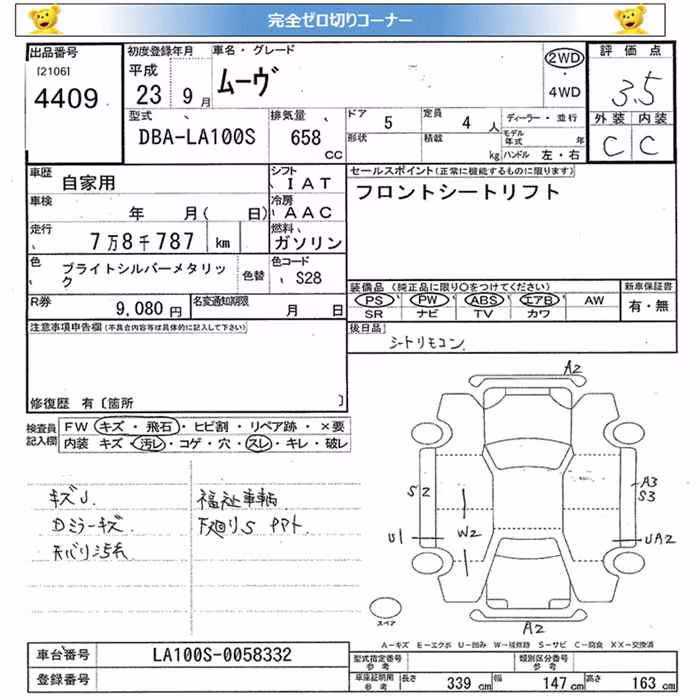 完全ゼロ切りコーナー
出品番号
[2106]
4409
初度登録年月
平成
23 9月
車名・グレード
ムーヴ
2WD
・
4WD
評価点
3.5
外装 内装
C C
型式
DBA-LA100S
排気量
658
CC
ドア
5
定員
4人
形状
積載
kg
ディーラー・並行
モデル年式 年
ハンドル 左・右
車歴
自家用
シフト
IAT
車検
年 月( 日)
冷房
AAC
走行
7万8千787 km
燃料
ガソリン
色
ブライトシルバーメタリック
色替
色コード
S28
R券
9,080円
名変通知期限
月 日
セールスポイント(正常に機能するものに限ります)
フロントシートリフト
装備品(純正品に限り○をつけてください)
PS PW ABS エアB AW
SR ナビ TV カワ
新車保証書
有・無
後日品
シートリモコン
注意事項申告欄(不具合内容等は具体的に記入して下さい)
修復歴 有〔箇所 〕
検査員記入欄
FW キズ・飛石・ヒビ割・リペア跡・×要
内装 キズ・汚レ・コゲ・穴・スレ・キレ・破レ
キズ J.
Dミラーキズ
福祉車輌
下廻りS
A2
S2
A3
S3
U1
W2
UA2
A2
スペア
A-キズ E-エクボ U-凹み W-補修跡 S-サビ C-腐食 XX-交換済
車台番号
LA100S-0058332
登録番号
型式指定番号
参考
類別区分番号
参考
車庫証明用
参考
長さ 339 cm 幅 147 cm 高さ 163 cm